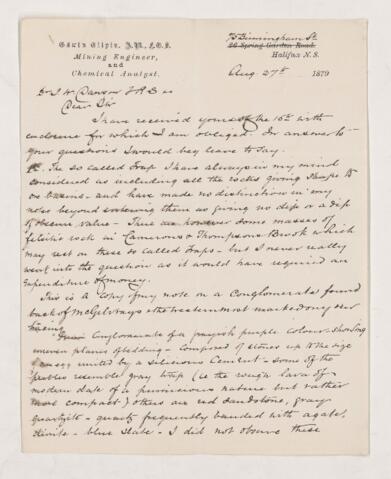 Edwin Gilpin, J.M., F.G.S.
Mining Engineer,
and
Chemical Analyst.
75 Birmingham St
26 Spring Garden Road.
Halifax N.S.
Aug 27th 1879
Dr J W Dawson F R S &c
Dear Sir
I have received yours of the 16th with
enclosure for which I am obliged. In answer to
your questions I would beg leave to say.
1st. The so called Trap I have always in my mind
considered as including all the rocks giving shape to
and have made no distinction in my
notes beyond them as giving no dip or a dip
of obscure value - There are however some masses of
felsitic rock in Camerons & Thompsons Brook which
may rest on these so called Traps - but I never really
went into the question as it would have required an
expenditure of money.
This is a copy of my note on a Conglomerate found
back of McGilvrays & the Western most marked on my
Conglomerate of a grayish purple colour showing
uneven planes of bedding - composed of stones up to the size
united by a Silicious Cement - some of the
pebbles resemble gray trap (ie the rough lava of
modern date of a pumicious nature but rather
more compact) others are red sandstone, gray
quartzite - quartz frequently banded with agate,
diorite - blue slate - I did not observe these